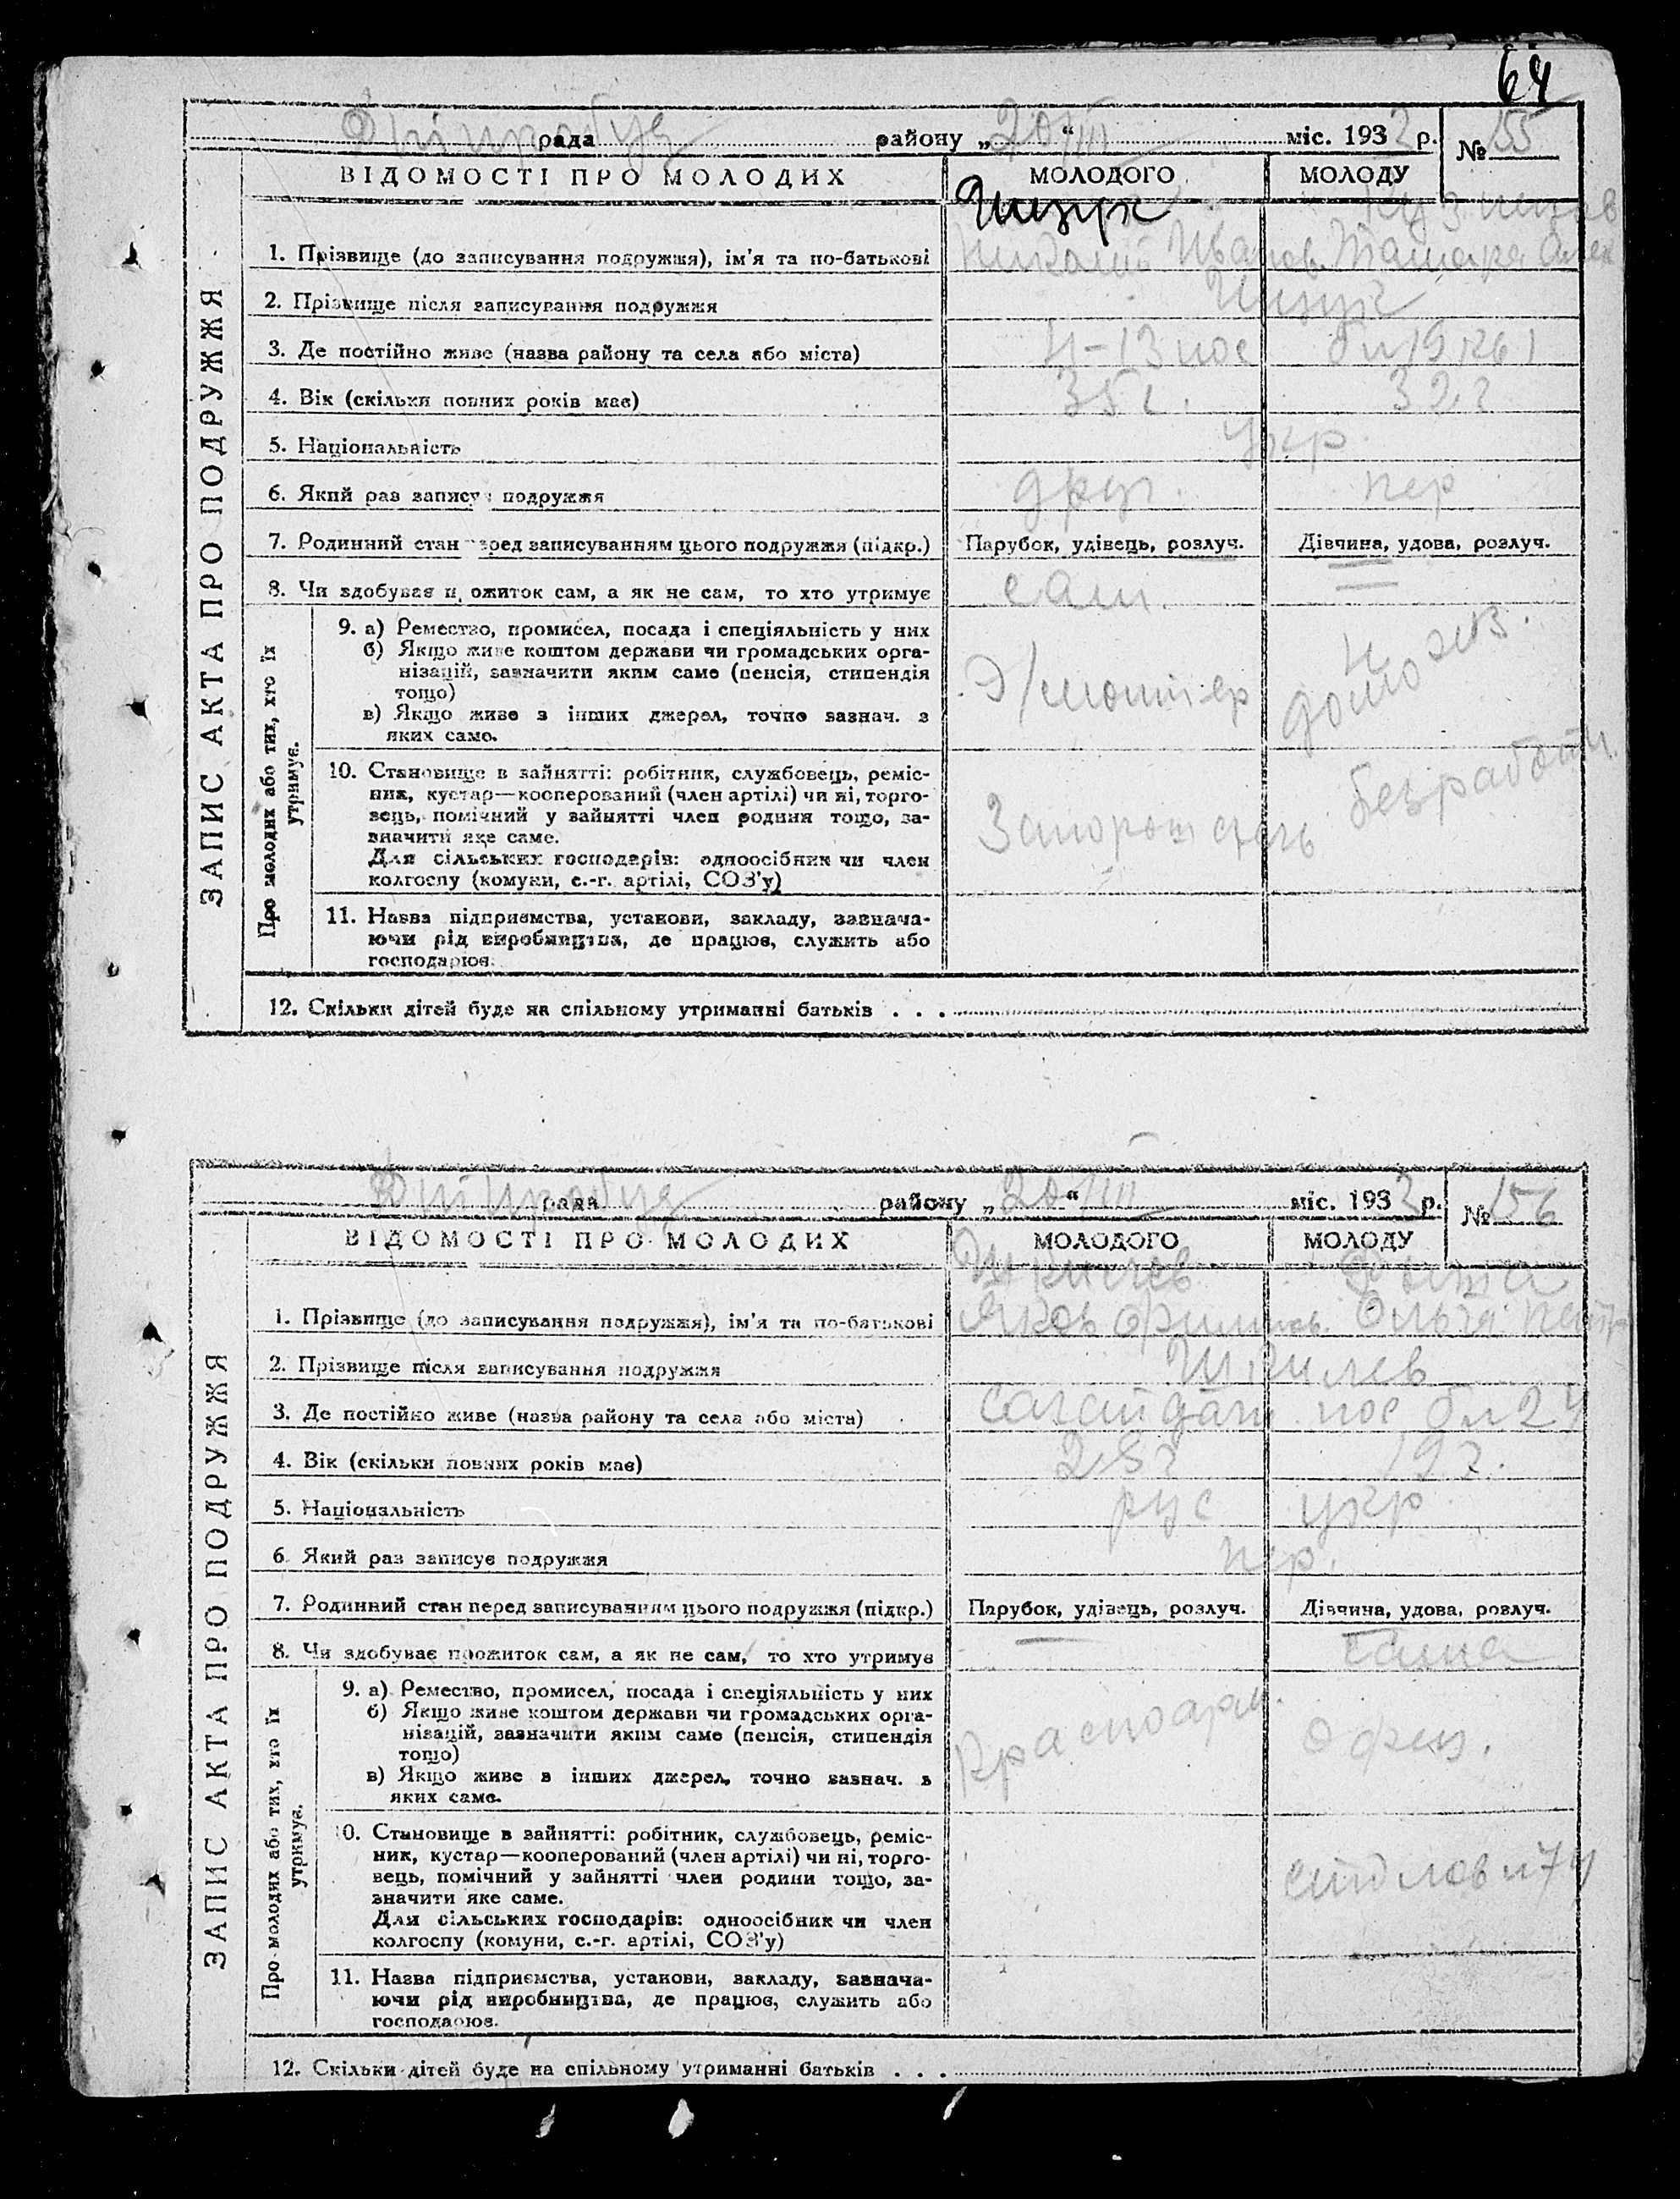 64
рада району „20/III“ міс. 1932 р. № 155
ВІДОМОСТІ ПРО МОЛОДИХ МОЛОДОГО МОЛОДУ
ЗАПИС АКТА ПРО ПОДРУЖЖЯ
1. Прізвище (до записування подружжя), ім'я та по-батькові Иванов Тамара
2. Прізвище після записування подружжя
3. Де постійно живе (назва району та села або міста) пос
4. Вік (скільки повних років має) 35 г. 32 г
5. Національність укр
6. Який раз записує подружжя друг. пер
7. Родинний стан перед записуванням цього подружжя (підкр.) Парубок, удівець, розлуч. Дівчина, удова, розлуч.
8. Чи здобуває прожиток сам, а як не сам, то хто утримує сам.
Про молодих або тих, хто їх утримує.
9. а) Ремество, промисел, посада і спеціяльність у них
б) Якщо живе коштом держави чи громадських орга-
нізацій, зазначити яким саме (пенсія, стипендія
тощо)
в) Якщо живе з інших джерел, точно зазнач. з
яких саме.
Э/монтер
домохоз.
10. Становище в зайнятті: робітник, службовець, реміс-
ник, кустар—кооперований (член артілі) чи ні, торго-
вець, помічний у зайнятті член родини тощо, за-
значити яке саме.
Для сільських господарів: одноосібник чи член
колгоспу (комуни, с.-г. артілі, СОЗ'у)
Запорожсталь
безработн.
11. Назва підприємства, установи, закладу, зазнача-
ючи рід виробництва, де працює, служить або
господарює.
12. Скільки дітей буде на спільному утриманні батьків . . .
рада району „20/III“ міс. 1932 р. № 156
ВІДОМОСТІ ПРО МОЛОДИХ МОЛОДОГО МОЛОДУ
ЗАПИС АКТА ПРО ПОДРУЖЖЯ
1. Прізвище (до записування подружжя), ім'я та по-батькові Яков Ольга Петр
2. Прізвище після записування подружжя
3. Де постійно живе (назва району та села або міста) пос бл 24
4. Вік (скільки повних років має) 19 г.
5. Національність рус укр
6. Який раз записує подружжя пер.
7. Родинний стан перед записуванням цього подружжя (підкр.) Парубок, удівець, розлуч. Дівчина, удова, розлуч.
8. Чи здобуває прожиток сам, а як не сам, то хто утримує сама
Про молодих або тих, хто їх утримує.
9. а) Ремество, промисел, посада і спеціяльність у них
б) Якщо живе коштом держави чи громадських орга-
нізацій, зазначити яким саме (пенсія, стипендія
тощо)
в) Якщо живе з інших джерел, точно зазнач. з
яких саме.
Красноарм.
офиц.
10. Становище в зайнятті: робітник, службовець, реміс-
ник, кустар—кооперований (член артілі) чи ні, торго-
вець, помічний у зайнятті член родини тощо, за-
значити яке саме.
Для сільських господарів: одноосібник чи член
колгоспу (комуни, с.-г. артілі, СОЗ'у)
11. Назва підприємства, установи, закладу, зазнача-
ючи рід виробництва, де працює, служить або
господарює.
12. Скільки дітей буде на спільному утриманні батьків . . .